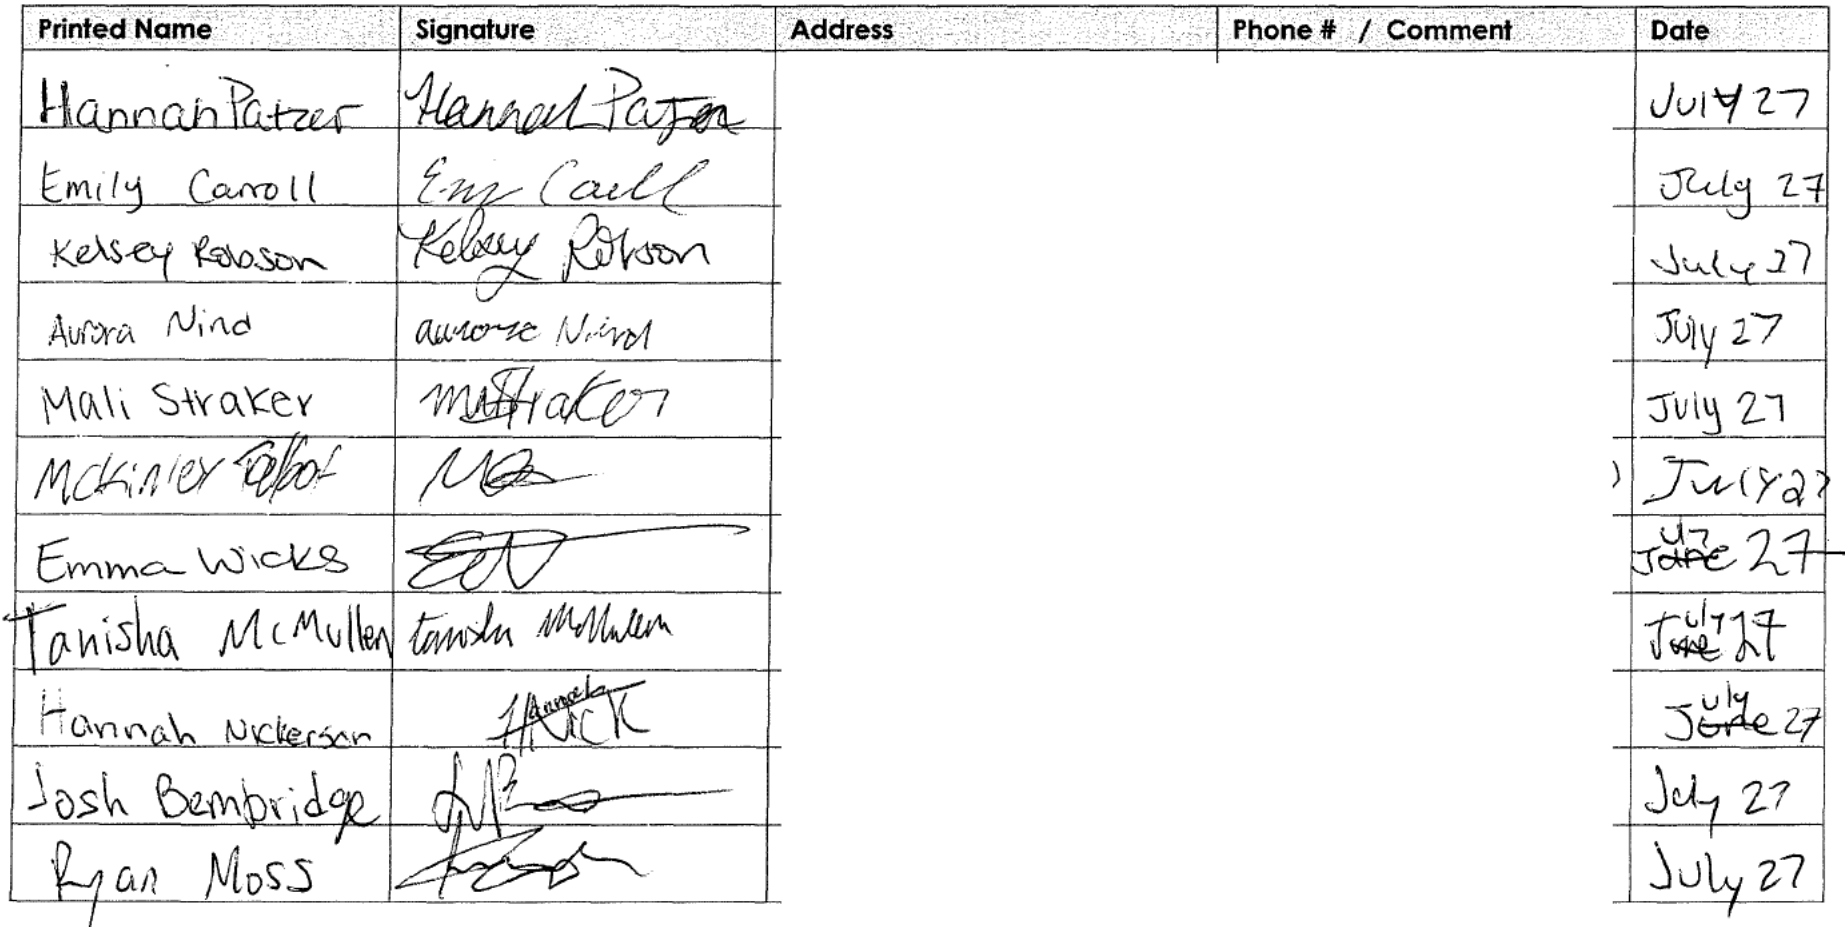 Printed Name Signature Address Phone # / Comment Date
Hannah Patzer Hannah Patzer July 27
Emily Carroll July 27
Kelsey Robson Kelsey Robson July 27
Aurora Nind aurora Nind July 27
Mali Straker Straker July 27
Mckinley Talbot July 27
Emma Wicks EW July 27
Tanisha McMullen tanisha McMullen July 27
Hannah Nickerson Hannah Nick July 27
Josh Bembridge July 27
Ryan Moss July 27